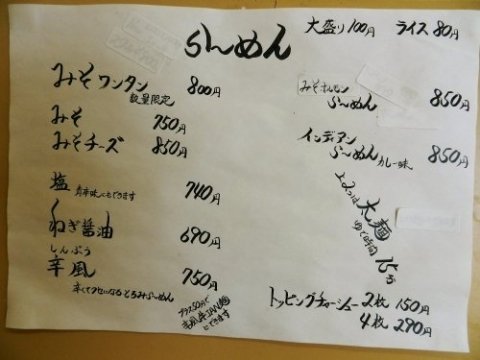 らーめん
大盛り100円 ライス80円
みそワンタン 800円
数量限定
みそ 750円
みそチーズ 850円
塩 740円
ねぎ醤油 690円
しんぷう
辛風 750円
辛くてクセになるとろみらーめん
らーめん 850円
インディアン
らーめん カレー味 850円
太麺
ゆで時間 15分
トッピングチャーシュー 2枚 150円
4枚 290円
プラス50円で
にできます